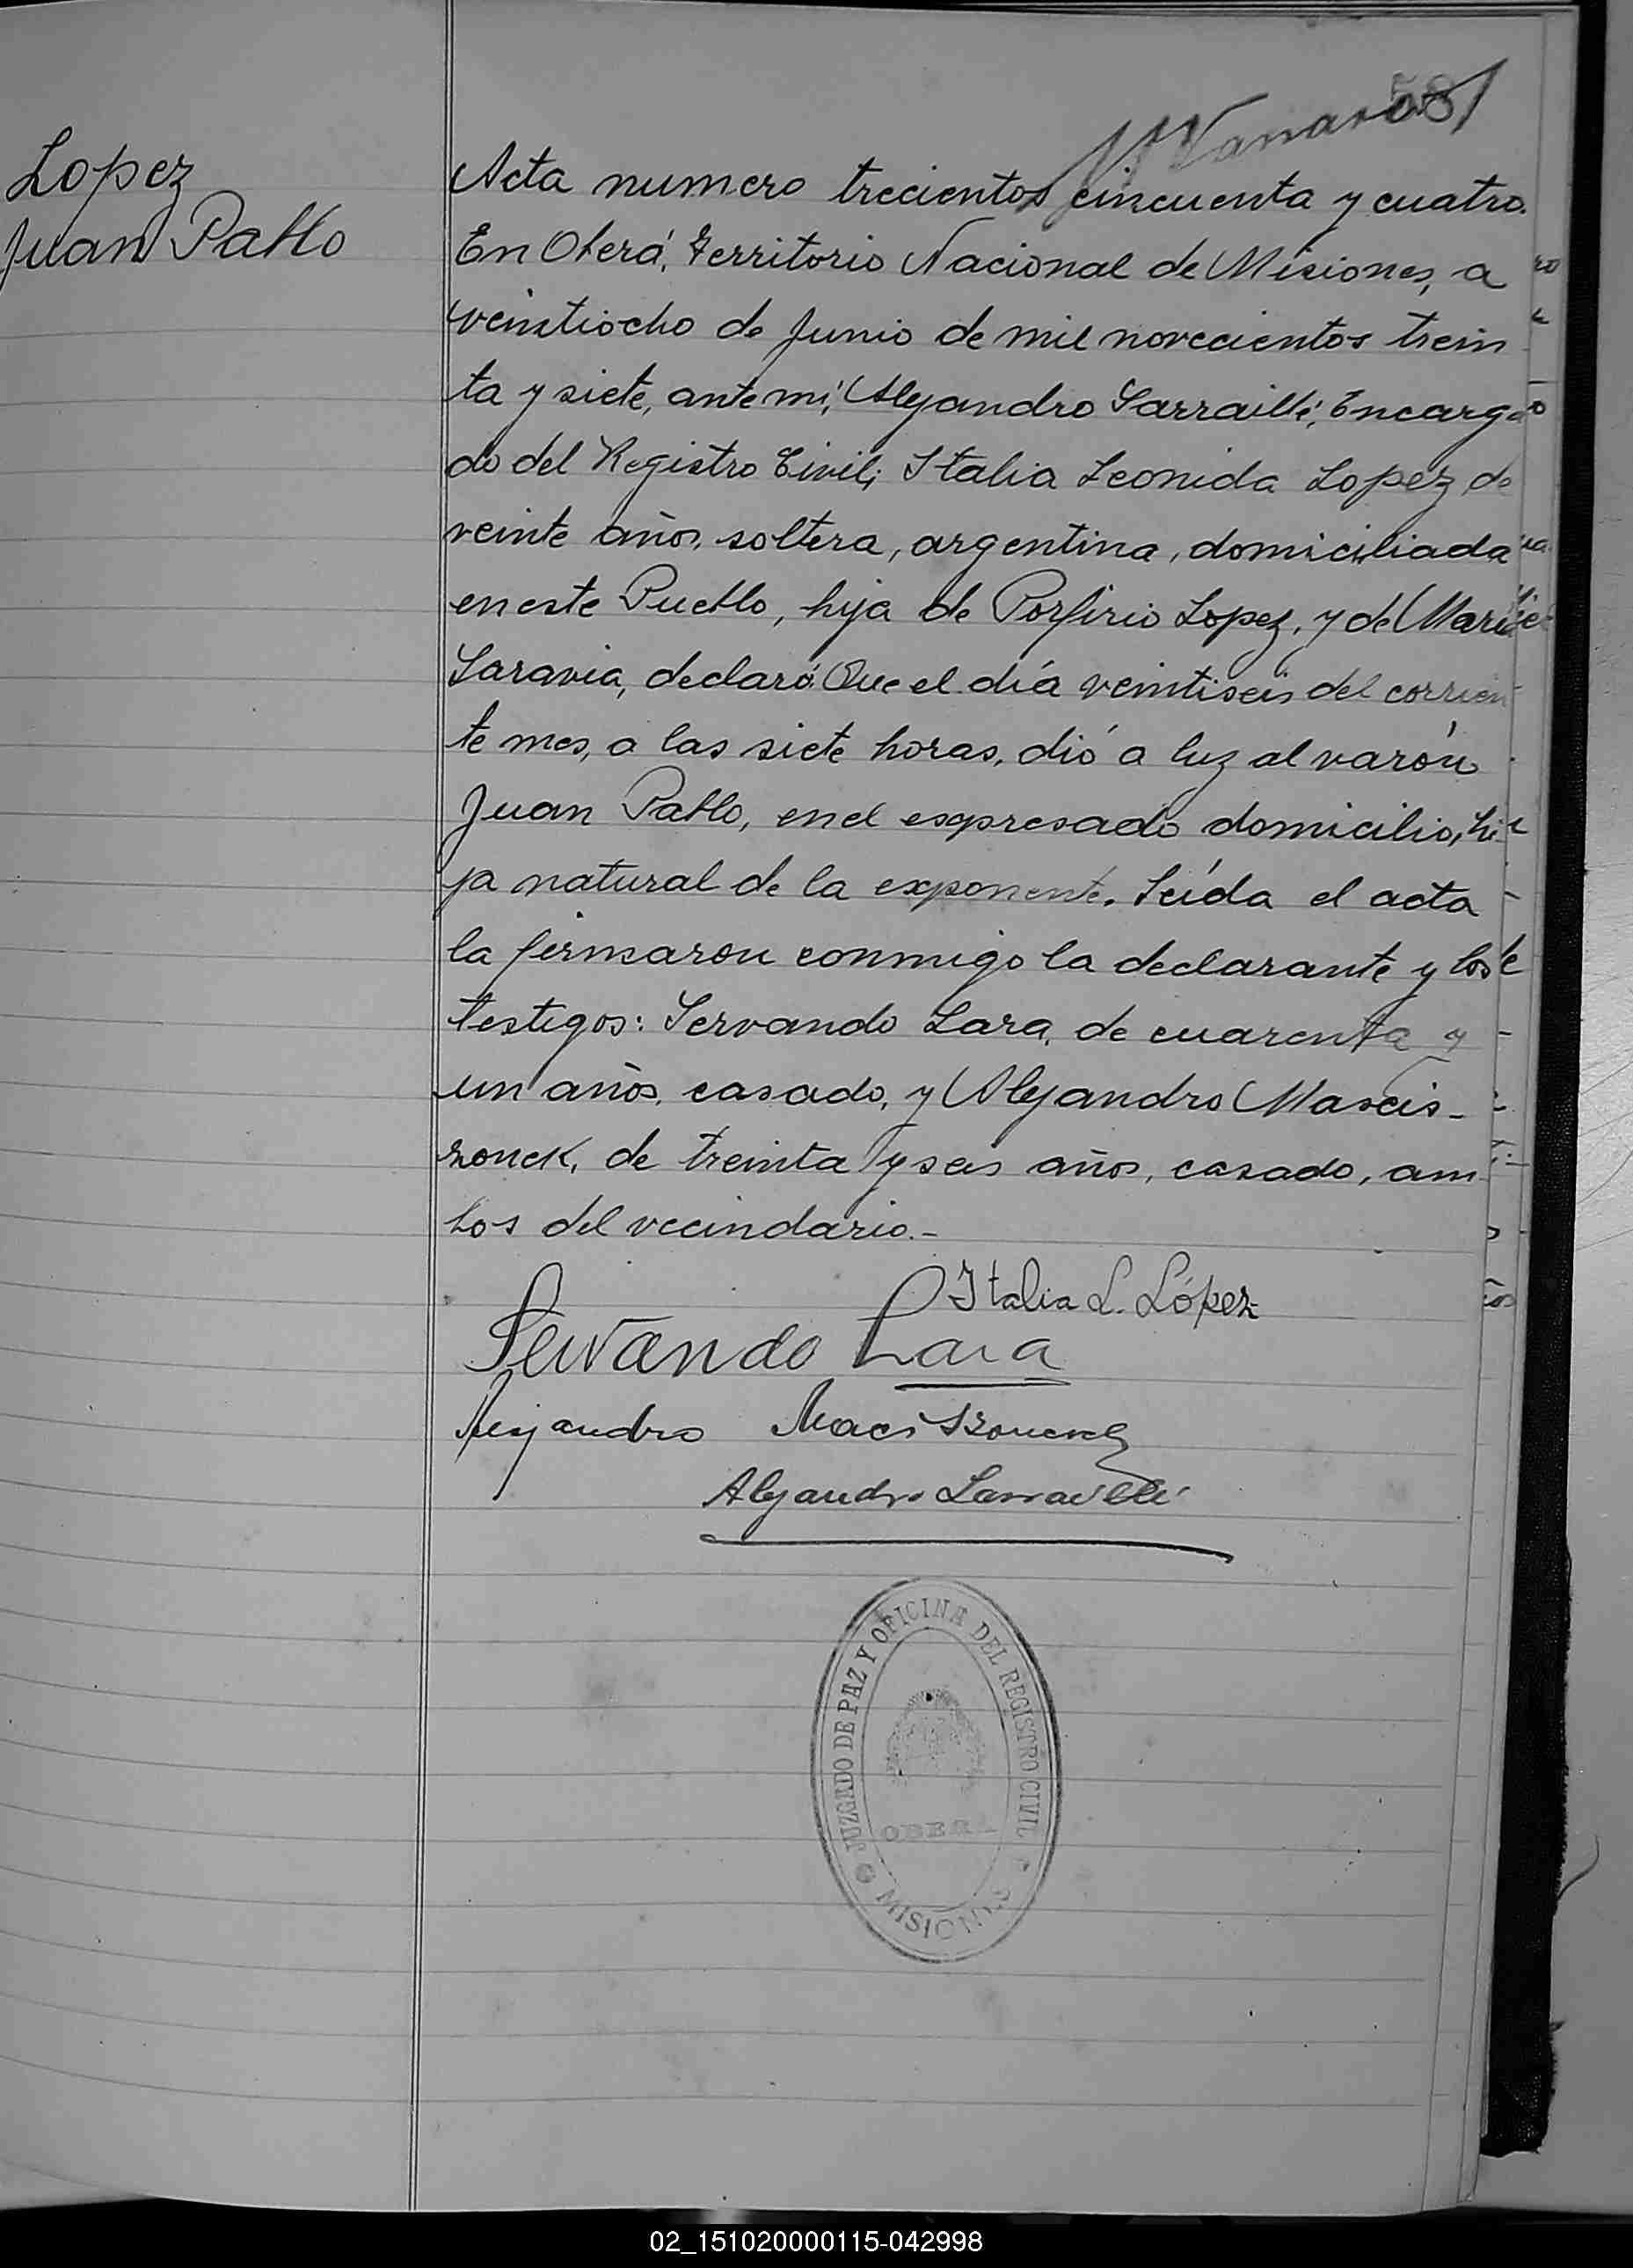 581
Lopez
Juan Pablo
Acta numero trecientos cincuenta y cuatro.
En Oberá, Territorio Nacional de Misiones, a
veintiocho de Junio de mil novecientos trein
ta y siete, ante mi, Alejandro Sarraillé, Encarga
do del Registro Civil; Italia Leonida Lopez de
veinte años, soltera, argentina, domiciliada
en este Pueblo, hija de Porfirio Lopez, y de Maria
Saravia, declaró: Que el día veintiseis del corrien
te mes, a las siete horas, dió a luz al varón
Juan Pablo, en el expresado domicilio, hi
jo natural de la exponente. Leída el acta
la firmaron conmigo la declarante y los
testigos: Servando Lara, de cuarenta y
un años, casado, y Alejandro Mascis-
zonek, de treinta y seis años, casado, am
bos del vecindario.-
Italia L. López
Servando Lara
Alejandro
Alejandro Sarraillé
JUZGADO DE PAZ Y OFICINA DEL REGISTRO CIVIL
OBERA
MISIONES
02_151020000115-042998